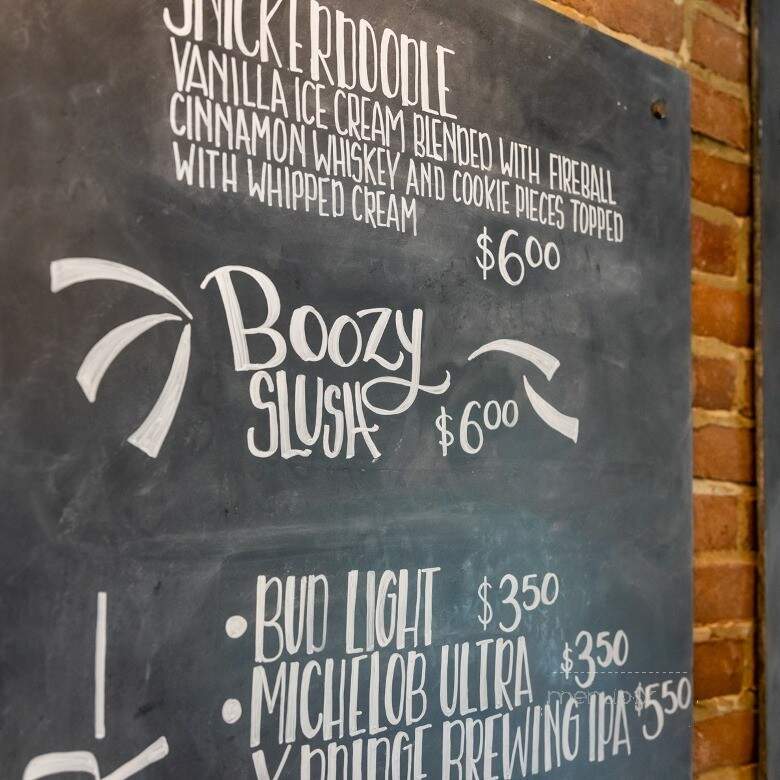 SNICKERDOODLE
VANILLA ICE CREAM BLENDED WITH FIREBALL
CINNAMON WHISKEY AND COOKIE PIECES TOPPED
WITH WHIPPED CREAM
$600
BOOZY
SLUSH $600
• BUD LIGHT $350
• MICHELOB ULTRA $350
BREWING IPA $550